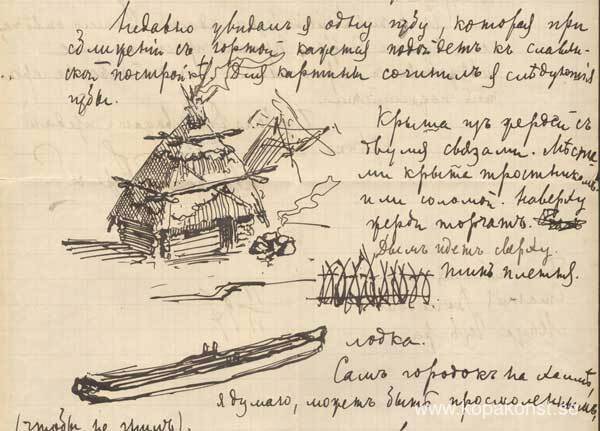 Недавно увидалъ я одну избу, которая при
сближеніи съ гортой кажется подойдетъ къ славян-
ской постройкѣ. Для картины сочинилъ я слѣдующія
избы.
Крыша изъ жердей съ
двумя связами. Мѣста-
ми крыта тростникомъ
или соломой. Наверху
жерди торчатъ.
Дымъ идетъ сверху.
Типъ плетня.
лодка.
Самъ городокъ на холмѣ,
я думаю, можетъ быть просмоленнымъ,
(чтобы не гнилъ).
www.kopakonst.se